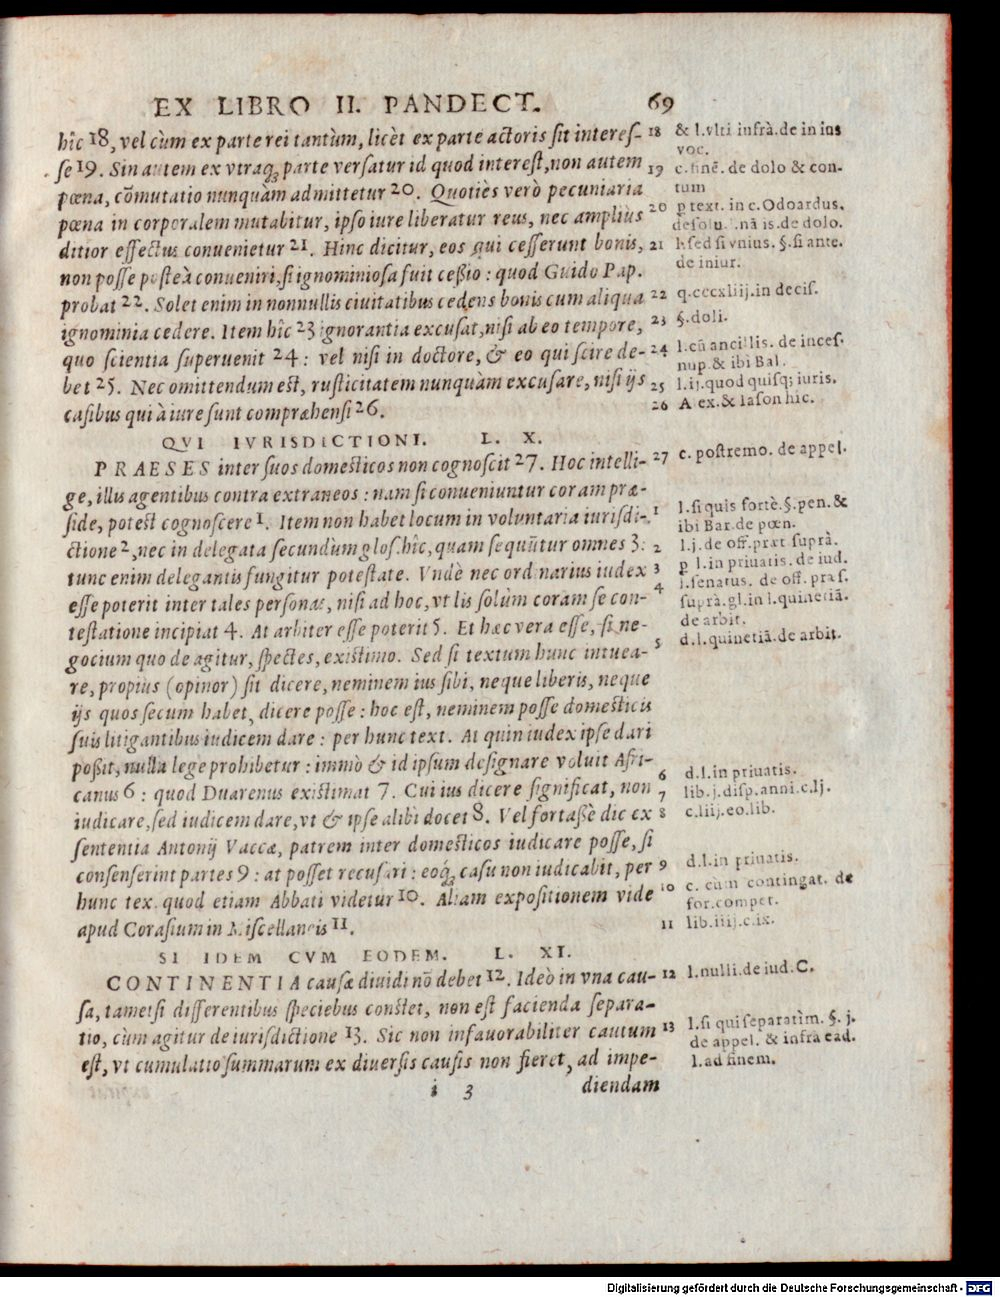 EX LIBRO II. PANDECT. 69
hîc 18, vel cùm ex parte rei tantùm, licèt ex parte actoris sit interes-
se 19. Sin autem ex vtraq; parte versatur id quod interest, non autem
pœna, cõmutatio nunquàm admittetur 20. Quotiès verò pecuniaria
pœna in corporalem mutabitur, ipso iure liberatur reus, nec ampliùs
ditior effectus conuenietur 21. Hinc dicitur, eos qui cesserunt bonis,
non posse posteà conueniri, si ignominiosa fuit cessio: quod Guido Pap.
probat 22. Solet enim in nonnullis ciuitatibus cedens bonis cum aliqua
ignominia cedere. Item hîc 23 ignorantia excusat, nisi ab eo tempore,
quo scientia superuenit 24: vel nisi in doctore, & eo qui scire de-
bet 25. Nec omittendum est, rusticitatem nunquàm excusare, nisi ijs
casibus qui à iure sunt compræhensi 26.
QVI IVRISDICTIONI. L. X.
PRAESES inter suos domesticos non cognoscit 27. Hoc intelli-
ge, illis agentibus contra extraneos: nam si conueniuntur coram præ-
side, potest cognoscere 1. Item non habet locum in voluntaria iurisdi-
ctione 2, nec in delegata secundum glos. hîc, quam sequũtur omnes 3:
tunc enim delegantis fungitur potestate. Vndè nec ordinarius iudex
esse poterit inter tales personas, nisi ad hoc, vt lis solùm coram se con-
testatione incipiat 4. At arbiter esse poterit 5. Et hæc vera esse, si ne-
gocium quo de agitur, spectes, existimo. Sed si textum hunc intuea-
re, propius (opinor) sit dicere, neminem ius sibi, neque liberis, neque
ijs quos secum habet, dicere posse: hoc est, neminem posse domesticis
suis litigantibus iudicem dare: per hunc text. At quin iudex ipse dari
possit, nulla lege prohibetur: immò & id ipsum designare voluit Afri-
canus 6: quod Duarenus existimat 7. Cui ius dicere significat, non
iudicare, sed iudicem dare, vt & ipse alibi docet 8. Vel fortassè dic ex
sententia Antonij Vaccæ, patrem inter domesticos iudicare posse, si
consenserint partes 9: at posset recusari: eoq; casu non iudicabit, per
hunc tex. quod etiam Abbati videtur 10. Aliam expositionem vide
apud Corasium in Miscellaneis 11.
SI IDEM CVM EODEM. L. XI.
CONTINENTIA causæ diuidi nõ debet 12. Ideò in vna cau-
sa, tametsi differentibus speciebus constet, non est facienda separa-
tio, cùm agitur de iurisdictione 13. Sic non infauorabiliter cautum
est, vt cumulatio summarum ex diuersis causis non fieret, ad impe-
i 3 diendam
18 & l.vlti infrà.de in ius
voc.
19 c.finẽ. de dolo & con-
tum
20 p text. in c. Odoardus.
de solu. nã is.de dolo.
21 l.sed si vnius. §.si ante.
de iniur.
22 q.cccxliij.in decis.
23 §.doli.
24 l.cũ ancillis. de inces.
nup.& ibi Bal.
25 l.ij.quod quisq; iuris.
26 Alex.& Iason hîc.
27 c. postremo. de appel.
1 l.si quis fortè.§.pen.&
ibi Bar.de pœn.
2 l.j. de off.præt suprà.
3 p l.in priuatis. de iud.
4 l.senatus. de off. præs.
suprà.gl.in l.quinetiã.
de arbit.
5 d.l.quinetiã.de arbit.
6 d.l.in priuatis.
7 lib.j.disp.anni.c.lj.
8 c.liij.eo.lib.
9 d.l.in priuatis.
10 c. cùm contingat. de
for.compet.
11 lib.iiij.c.ix.
12 l.nulli.de iud.C.
13 l.si qui separatìm. §. j.
de appel. & infrà ead.
l.ad finem.
Digitalisierung gefördert durch die Deutsche Forschungsgemeinschaft - DFG